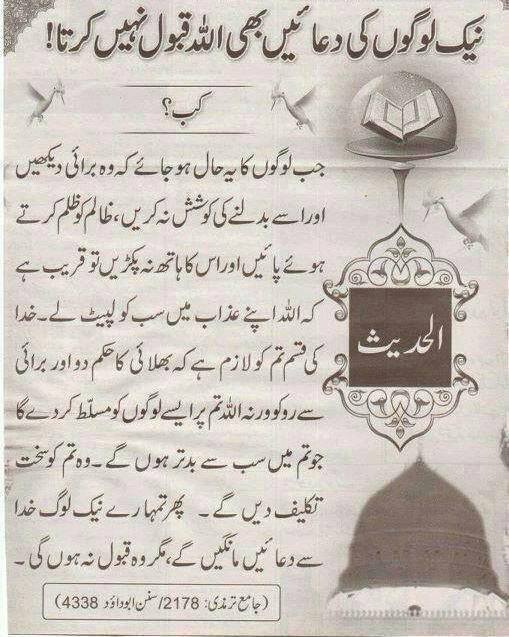 نیک لوگوں کی دعائیں بھی اللہ قبول نہیں کرتا!
کب؟
جب لوگوں کا یہ حال ہو جائے کہ وہ برائی دیکھیں
اور اسے بدلنے کی کوشش نہ کریں، ظالم کو ظلم کرتے
ہوئے پائیں اور اس کا ہاتھ نہ پکڑیں تو قریب ہے
کہ اللہ اپنے عذاب میں سب کو لپیٹ لے۔ خدا
کی قسم تم کو لازم ہے کہ بھلائی کا حکم دو اور برائی
سے روکو ورنہ اللہ تم پر ایسے لوگوں کو مسلّط کر دے گا
جو تم میں سب سے بدتر ہوں گے۔ وہ تم کو سخت
تکلیف دیں گے۔ پھر تمہارے نیک لوگ خدا
سے دعائیں مانگیں گے، مگر وہ قبول نہ ہوں گی۔
(جامع ترمذی: 2178/سنن ابوداؤد 4338)
الحدیث